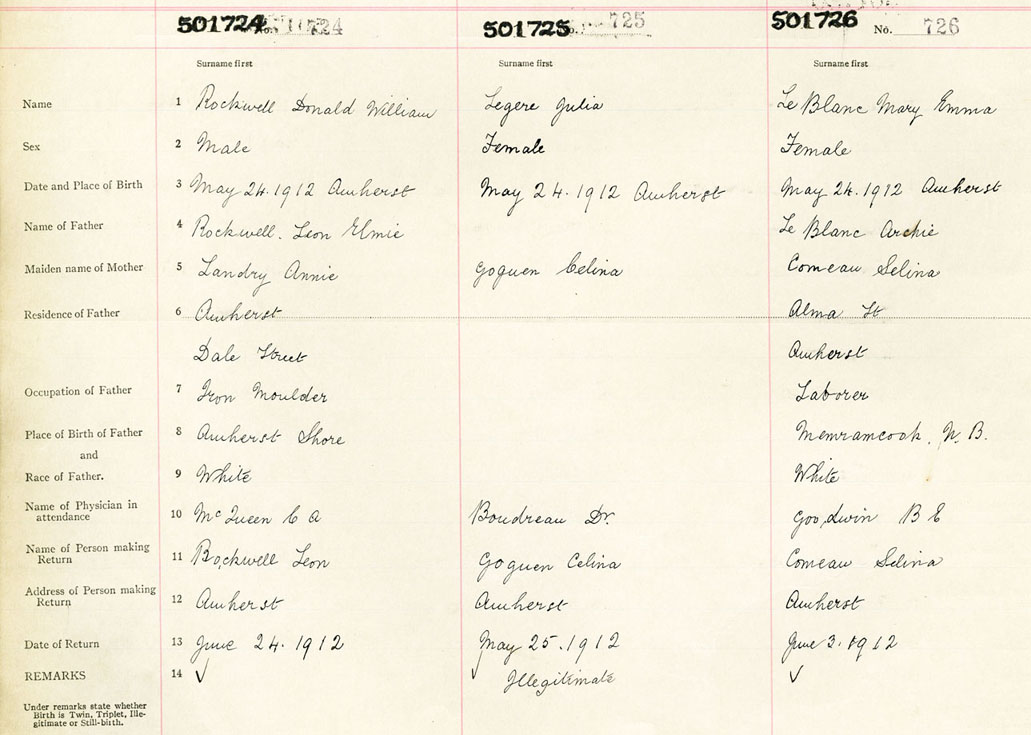 501724 No. 724 501725 No. 725 501726 No. 726
Surname first Surname first Surname first
Name 1 Rockwell Donald William Legere Julia Le Blanc Mary Emma
Sex 2 Male Female Female
Date and Place of Birth 3 May 24. 1912 Amherst May 24. 1912 Amherst May 24. 1912 Amherst
Name of Father 4 Rockwell. Leon Elmie Le Blanc Archie
Maiden name of Mother 5 Landry Annie Goguen Celina Comeau Selina
Residence of Father 6 Amherst Alma St
Dale Street Amherst
Occupation of Father 7 Iron Moulder Laborer
Place of Birth of Father 8 Amherst Shore Memramcook, N. B.
and
Race of Father. 9 White White
Name of Physician in
attendance 10 McQueen C A Boudreau Dr. Goodwin B E
Name of Person making
Return 11 Rockwell Leon Goguen Celina Comeau Selina
Address of Person making
Return 12 Amherst Amherst Amherst
Date of Return 13 June 24. 1912 May 25. 1912 June 3. 1912
REMARKS 14 ✓ ✓ Illegitimate ✓
Under remarks state whether
Birth is Twin, Triplet, Ille-
gitimate or Still-birth.